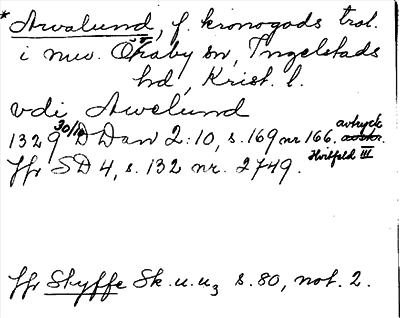 * Arvalund, f. kronogods trol.
i nuv. Öraby sn, Ingelstads
hd, Krist. l.
vdi Arvelund
1329 30/10 D Dan 2:10, s. 169 nr 166. avtryck
Hvitfeld III
Jfr SD 4, s. 132 nr. 2749.
Jfr Styffe Sk. u. u3 s. 80, not. 2.